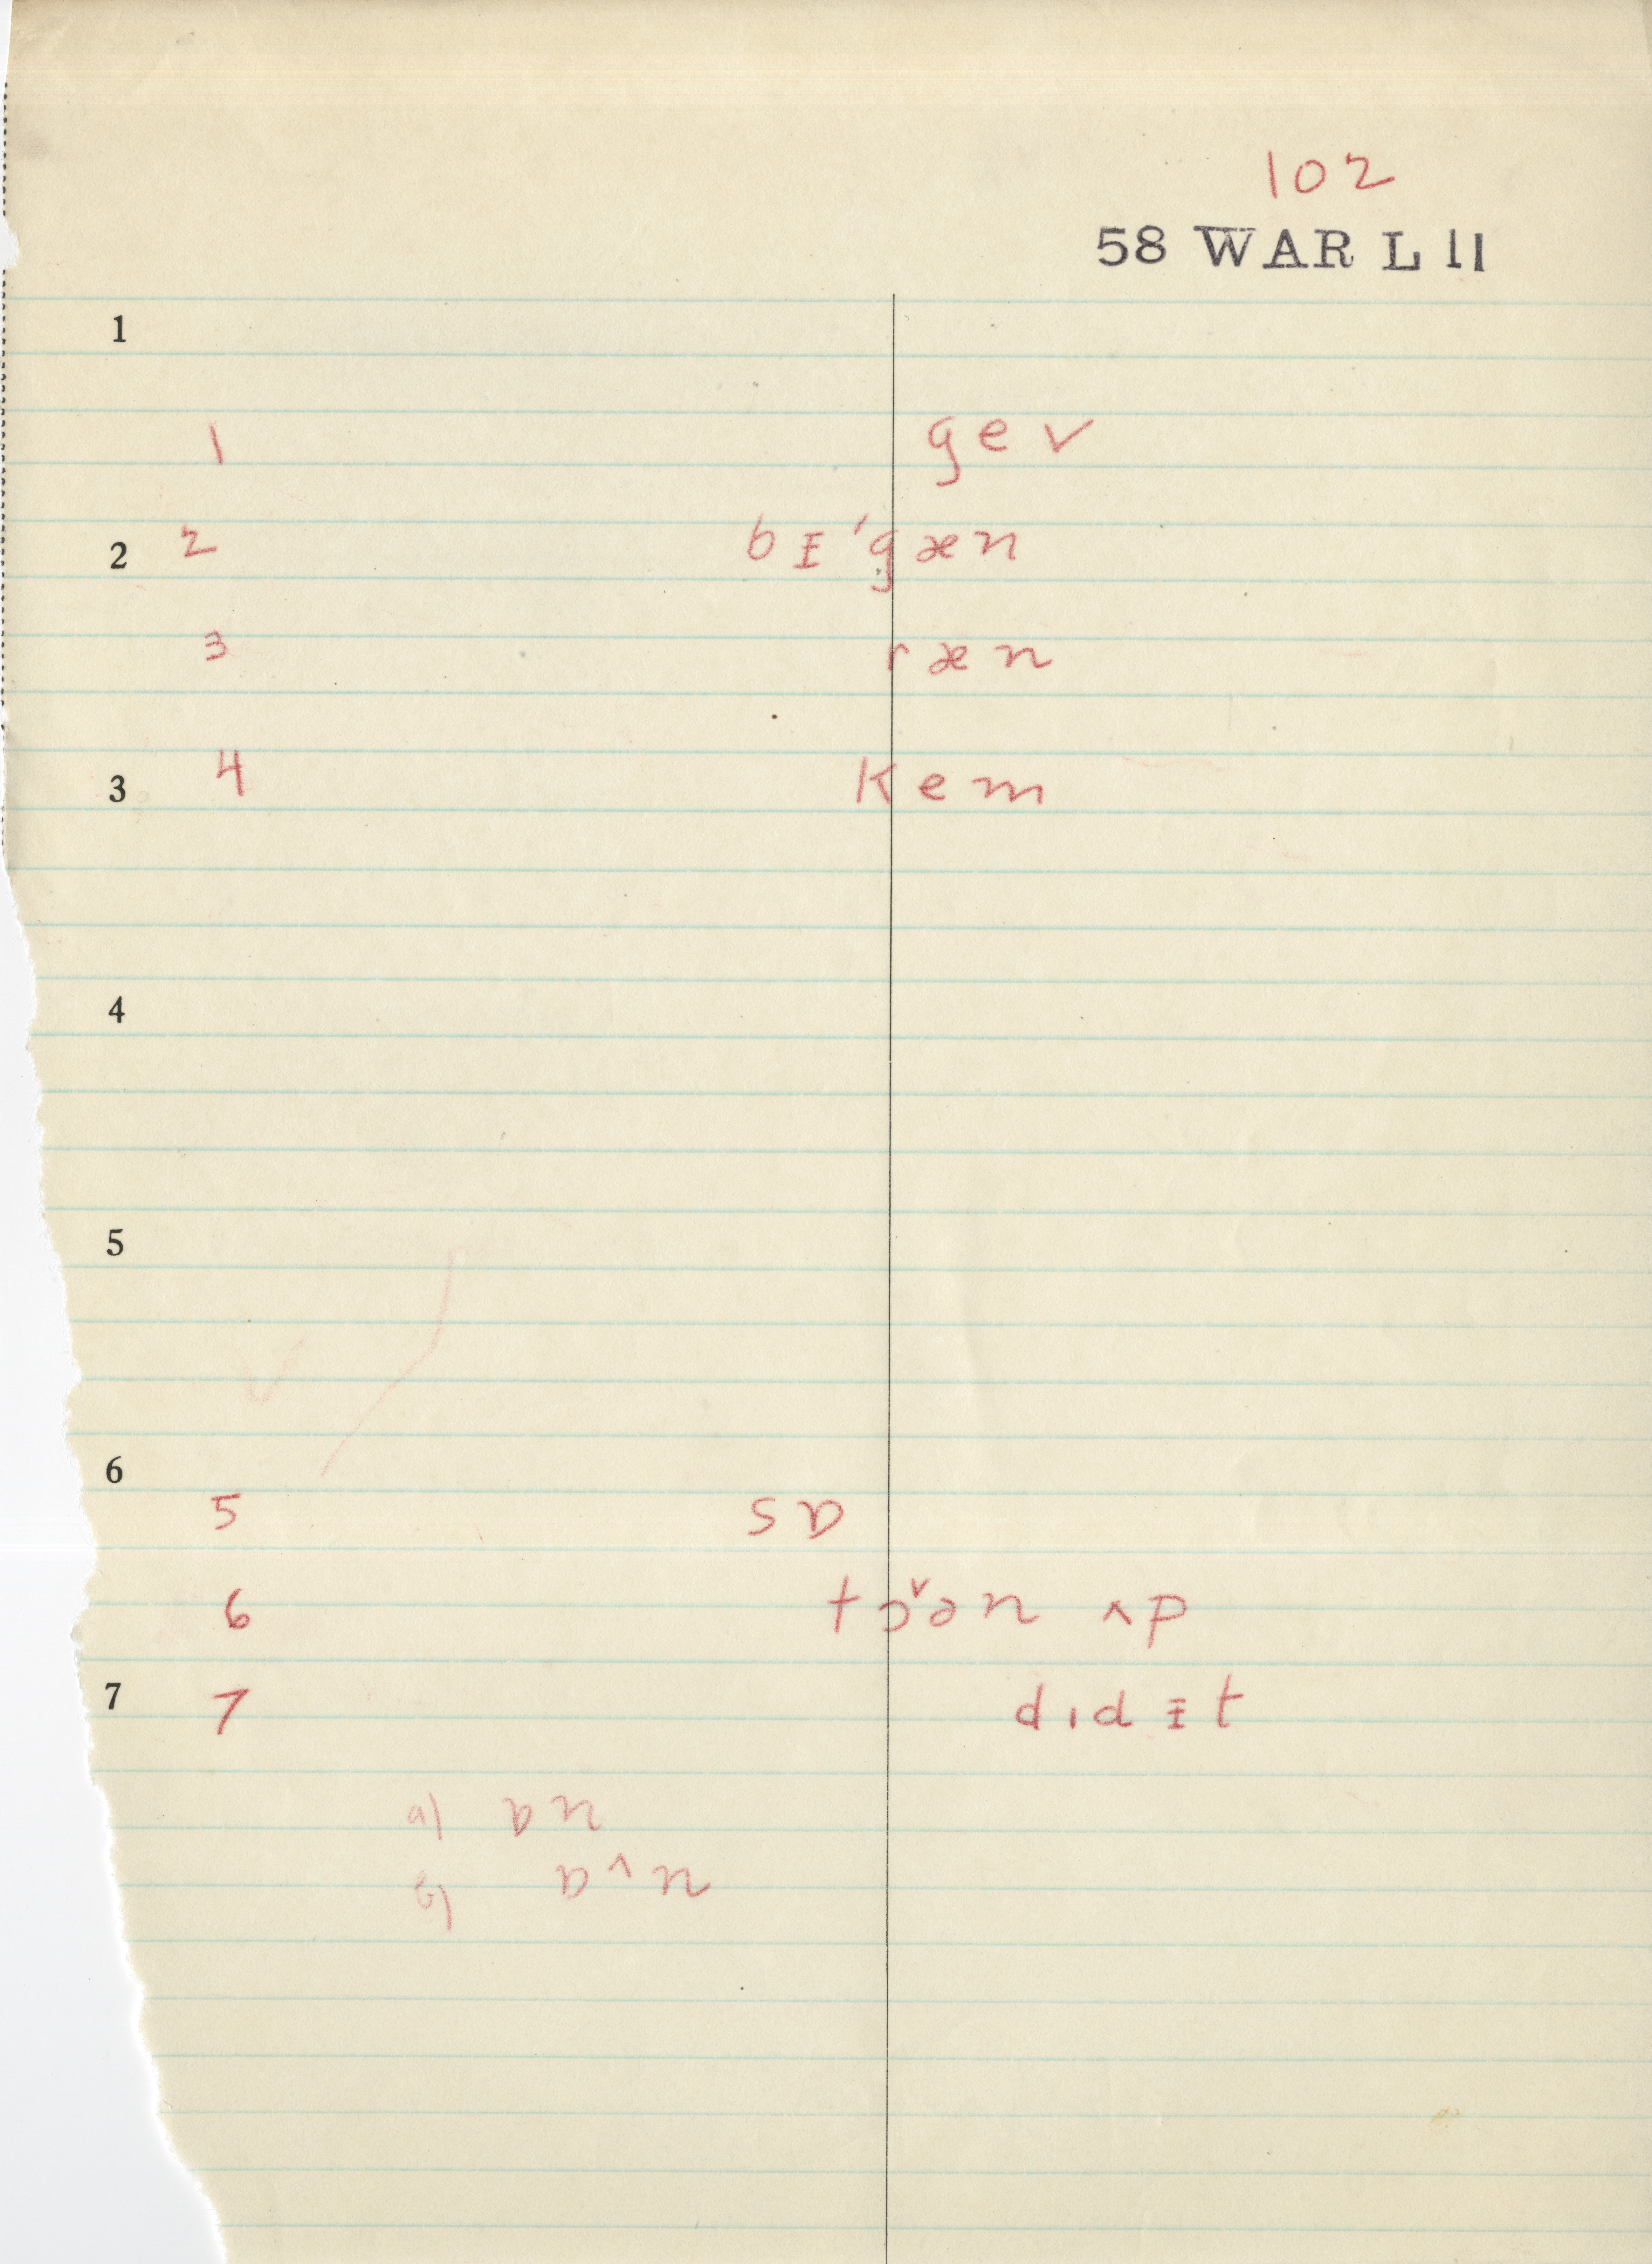 102
58 WAR L 11
1
1 gev
2 2 bᵻ'gæn
3 ræn
3 4 kem
4
5
6
5 sɒ
6 tɔ̬ən ʌp
7 7 dɪdᵻt
a) ɒn
b) ɒ˄n